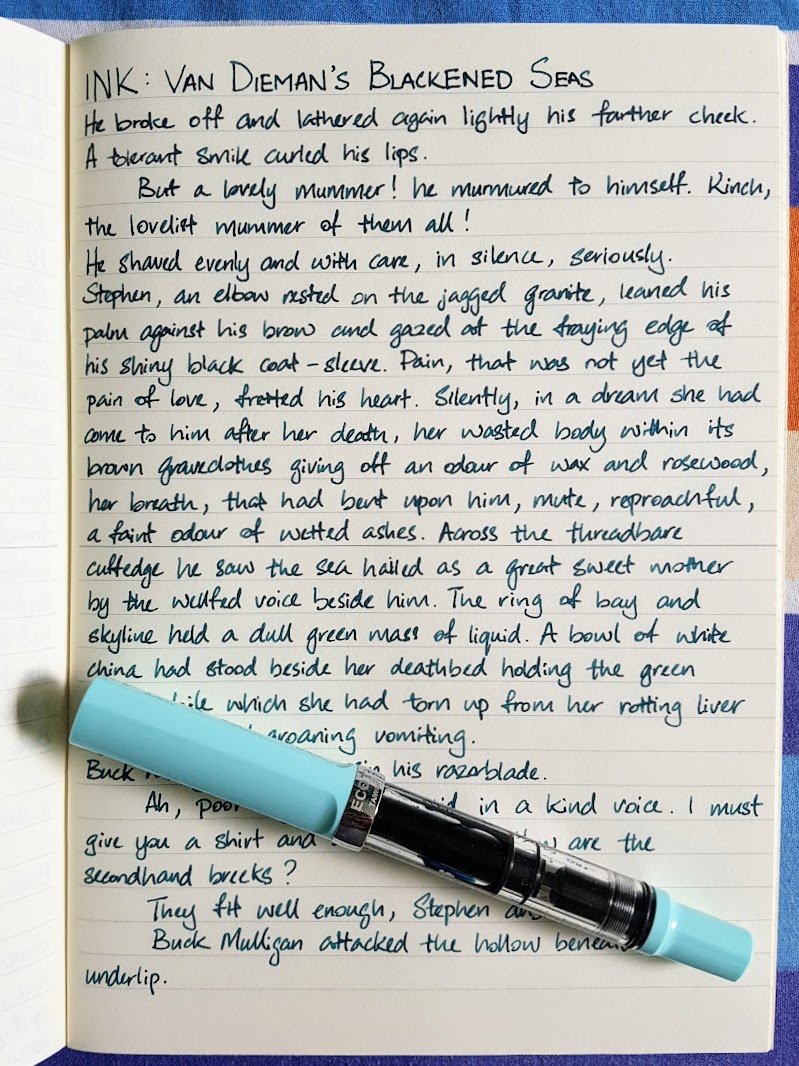 INK: VAN DIEMAN'S BLACKENED SEAS
He broke off and lathered again lightly his farther cheek.
A tolerant smile curled his lips.
But a lovely mummer! he murmured to himself. Kinch,
the lovelist mummer of them all!
He shaved evenly and with care, in silence, seriously.
Stephen, an elbow rested on the jagged granite, leaned his
palm against his brow and gazed at the fraying edge of
his shiny black coat-sleeve. Pain, that was not yet the
pain of love, fretted his heart. Silently, in a dream she had
come to him after her death, her wasted body within its
brown graveclothes giving off an odour of wax and rosewood,
her breath, that had bent upon him, mute, reproachful,
a faint odour of wetted ashes. Across the threadbare
cuffedge he saw the sea hailed as a great sweet mother
by the wellfed voice beside him. The ring of bay and
skyline held a dull green mass of liquid. A bowl of white
china had stood beside her deathbed holding the green
bile which she had torn up from her rotting liver
groaning vomiting.
Buck his razorblade.
Ah, poor in a kind voice. I must
give you a shirt and are the
secondhand breeks?
They fit well enough, Stephen
Buck Mulligan attacked the hollow
underlip.
ECO